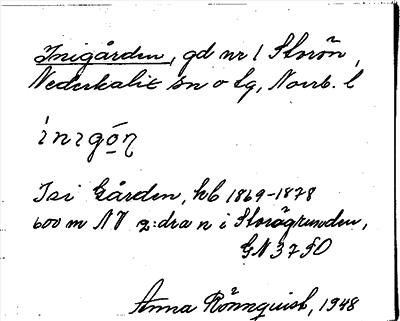 Inigården, gd nr 1 Storön,
Nederkalix sn o tg, Norrb. l
ìnɪgó̱ṇ
Isi Gården, hb 1869-1878
600 m NV 2:dra n i Storögrunden,
GN 3750
Anna Rönnquist, 1948